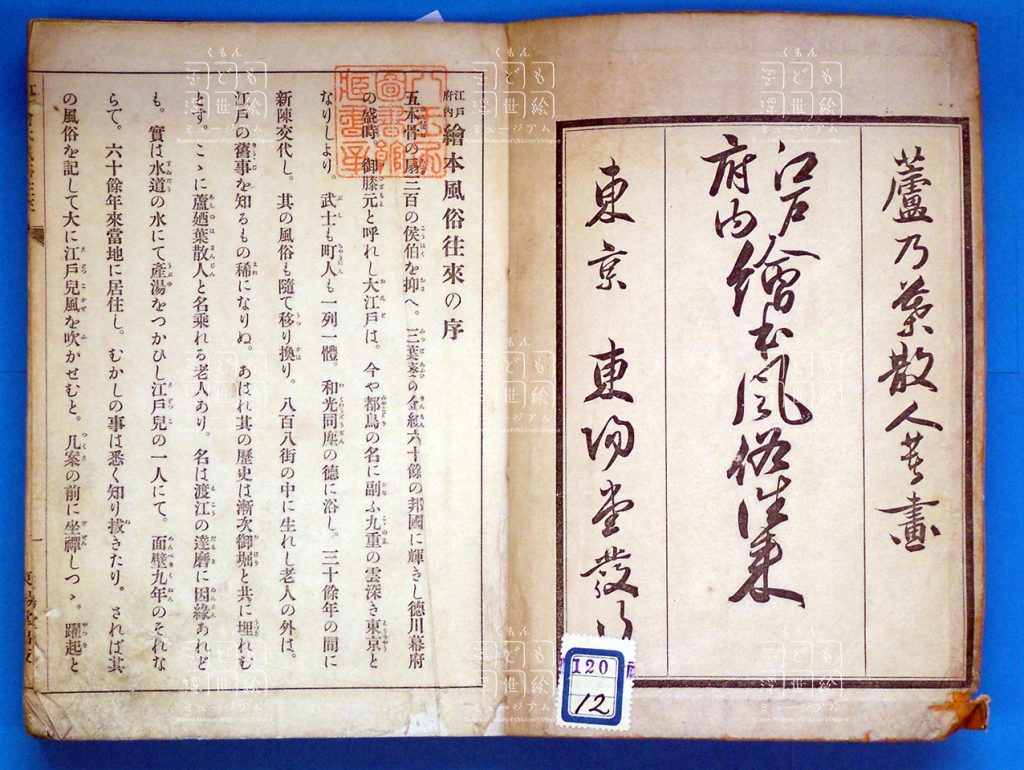 蘆乃葉散人著畫
江戸府内繪本風俗往來
東京 東陽堂發行
120
12
江戸府内繪本風俗往來の序
五本骨の扇三百の侯伯を抑へ。三葉葵の金紋六十餘の邦國に輝きし德川幕府
の盛時。御膝元と呼れし大江戸は。今や都鳥の名に副ふ九重の雲深き東京と
なりしより。武士も町人も一列一體。和光同塵の德に浴し。三十餘年の間に
新陳交代し。其の風俗も隨て移り換り。八百八街の中に生れし老人の外は。
江戸の舊事を知るもの稀になりぬ。あはれ其の歷史は漸次御堀と共に埋れむ
とす。こゝに蘆廼葉散人と名乘れる老人あり。名は渡江の達磨に因緣あれど
も。實は水道の水にて產湯をつかひし江戸兒の一人にて。面壁九年のそれな
らで。六十餘年來當地に居住し。むかしの事は悉く知り拔きたり。されば其
の風俗を記して大に江戸兒風を吹かせむと。几案の前に坐禪しつゝ。躍起と
一
くもん
子ども
浮世絵
ミュージアム